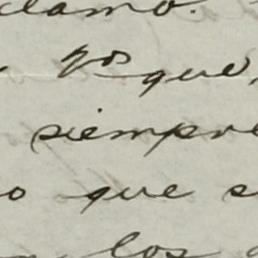 clamo.
por que,
siempre
o que s
los